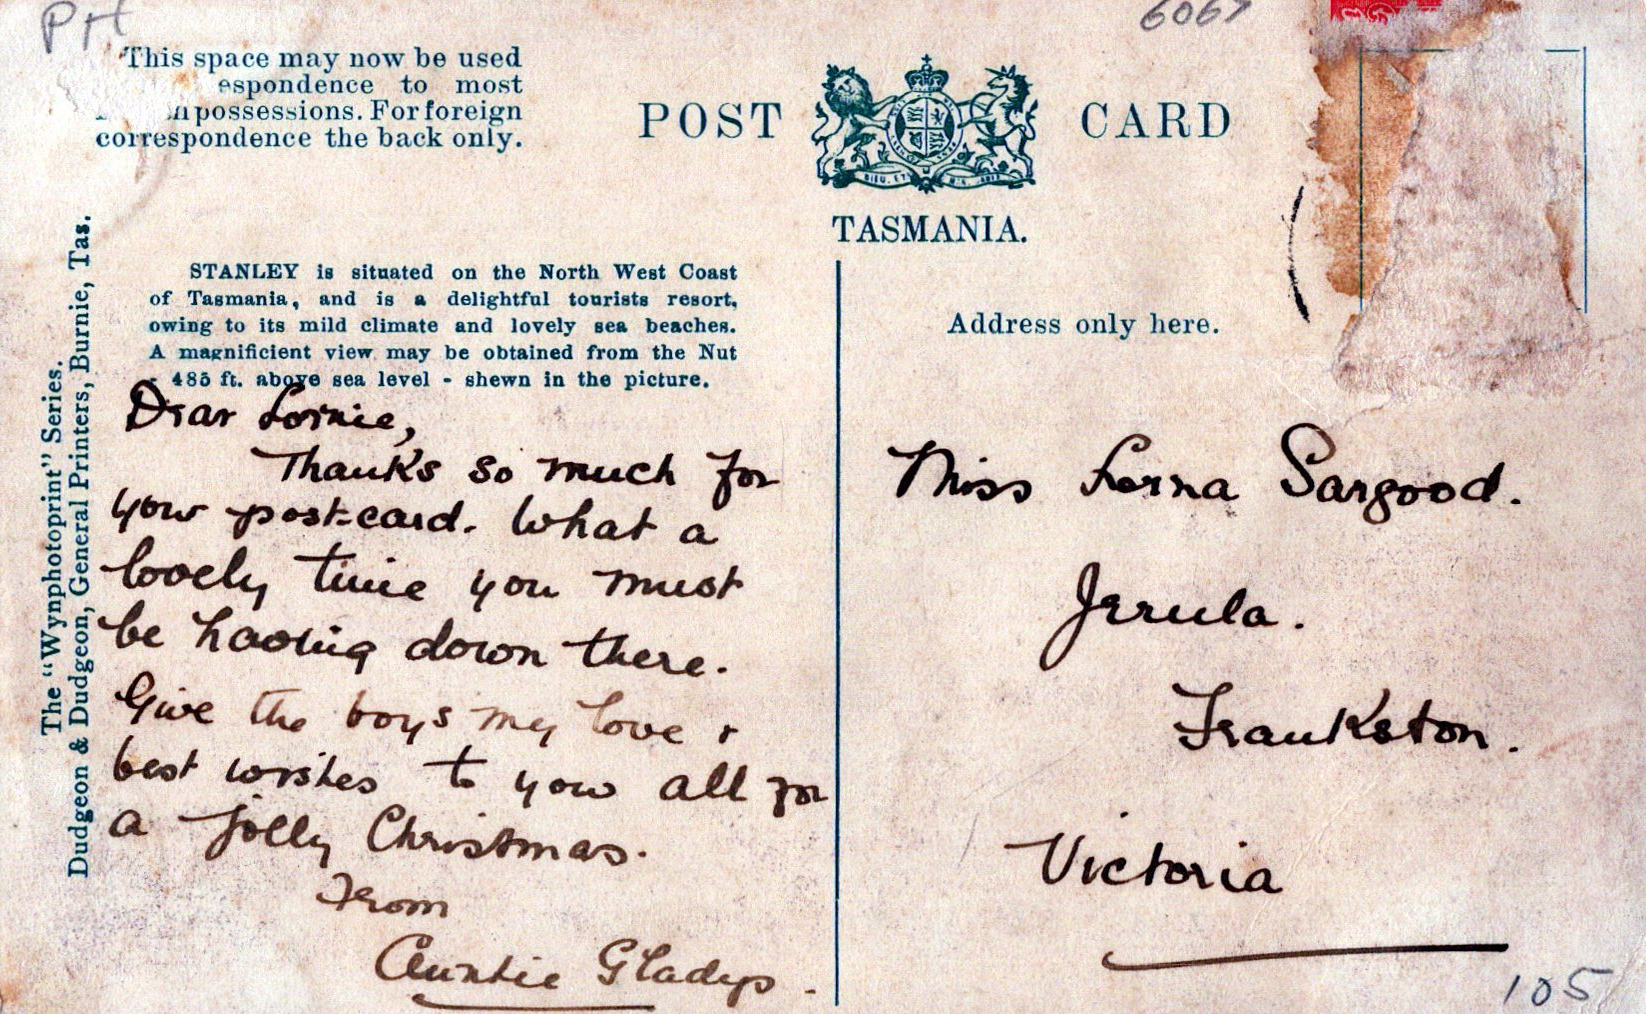 PH
6067
This space may now be used
espondence to most
n possessions. For foreign
correspondence the back only.
POST CARD
DIEU ET MON DROIT
TASMANIA.
The "Wynphotoprint" Series.
Dudgeon & Dudgeon, General Printers, Burnie, Tas.
STANLEY is situated on the North West Coast
of Tasmania, and is a delightful tourists resort,
owing to its mild climate and lovely sea beaches.
A magnificient view may be obtained from the Nut
- 485 ft. above sea level - shewn in the picture.
Address only here.
Dear Lornie,
Thanks so much for
your post-card. What a
lovely time you must
be having down there.
Give the boys my love +
best wishes to you all for
a jolly Christmas.
From
Auntie Gladys.
Miss Lorna Sargood.
Jerula.
Frankston.
Victoria
105